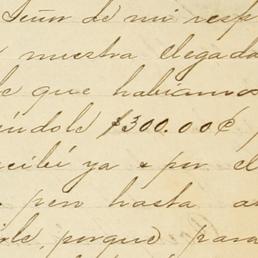 Señor de mi resp
nuestra llegada
que habiamos
endole $300.00¢ p
recibi ya por el
pero hasta a
porque para